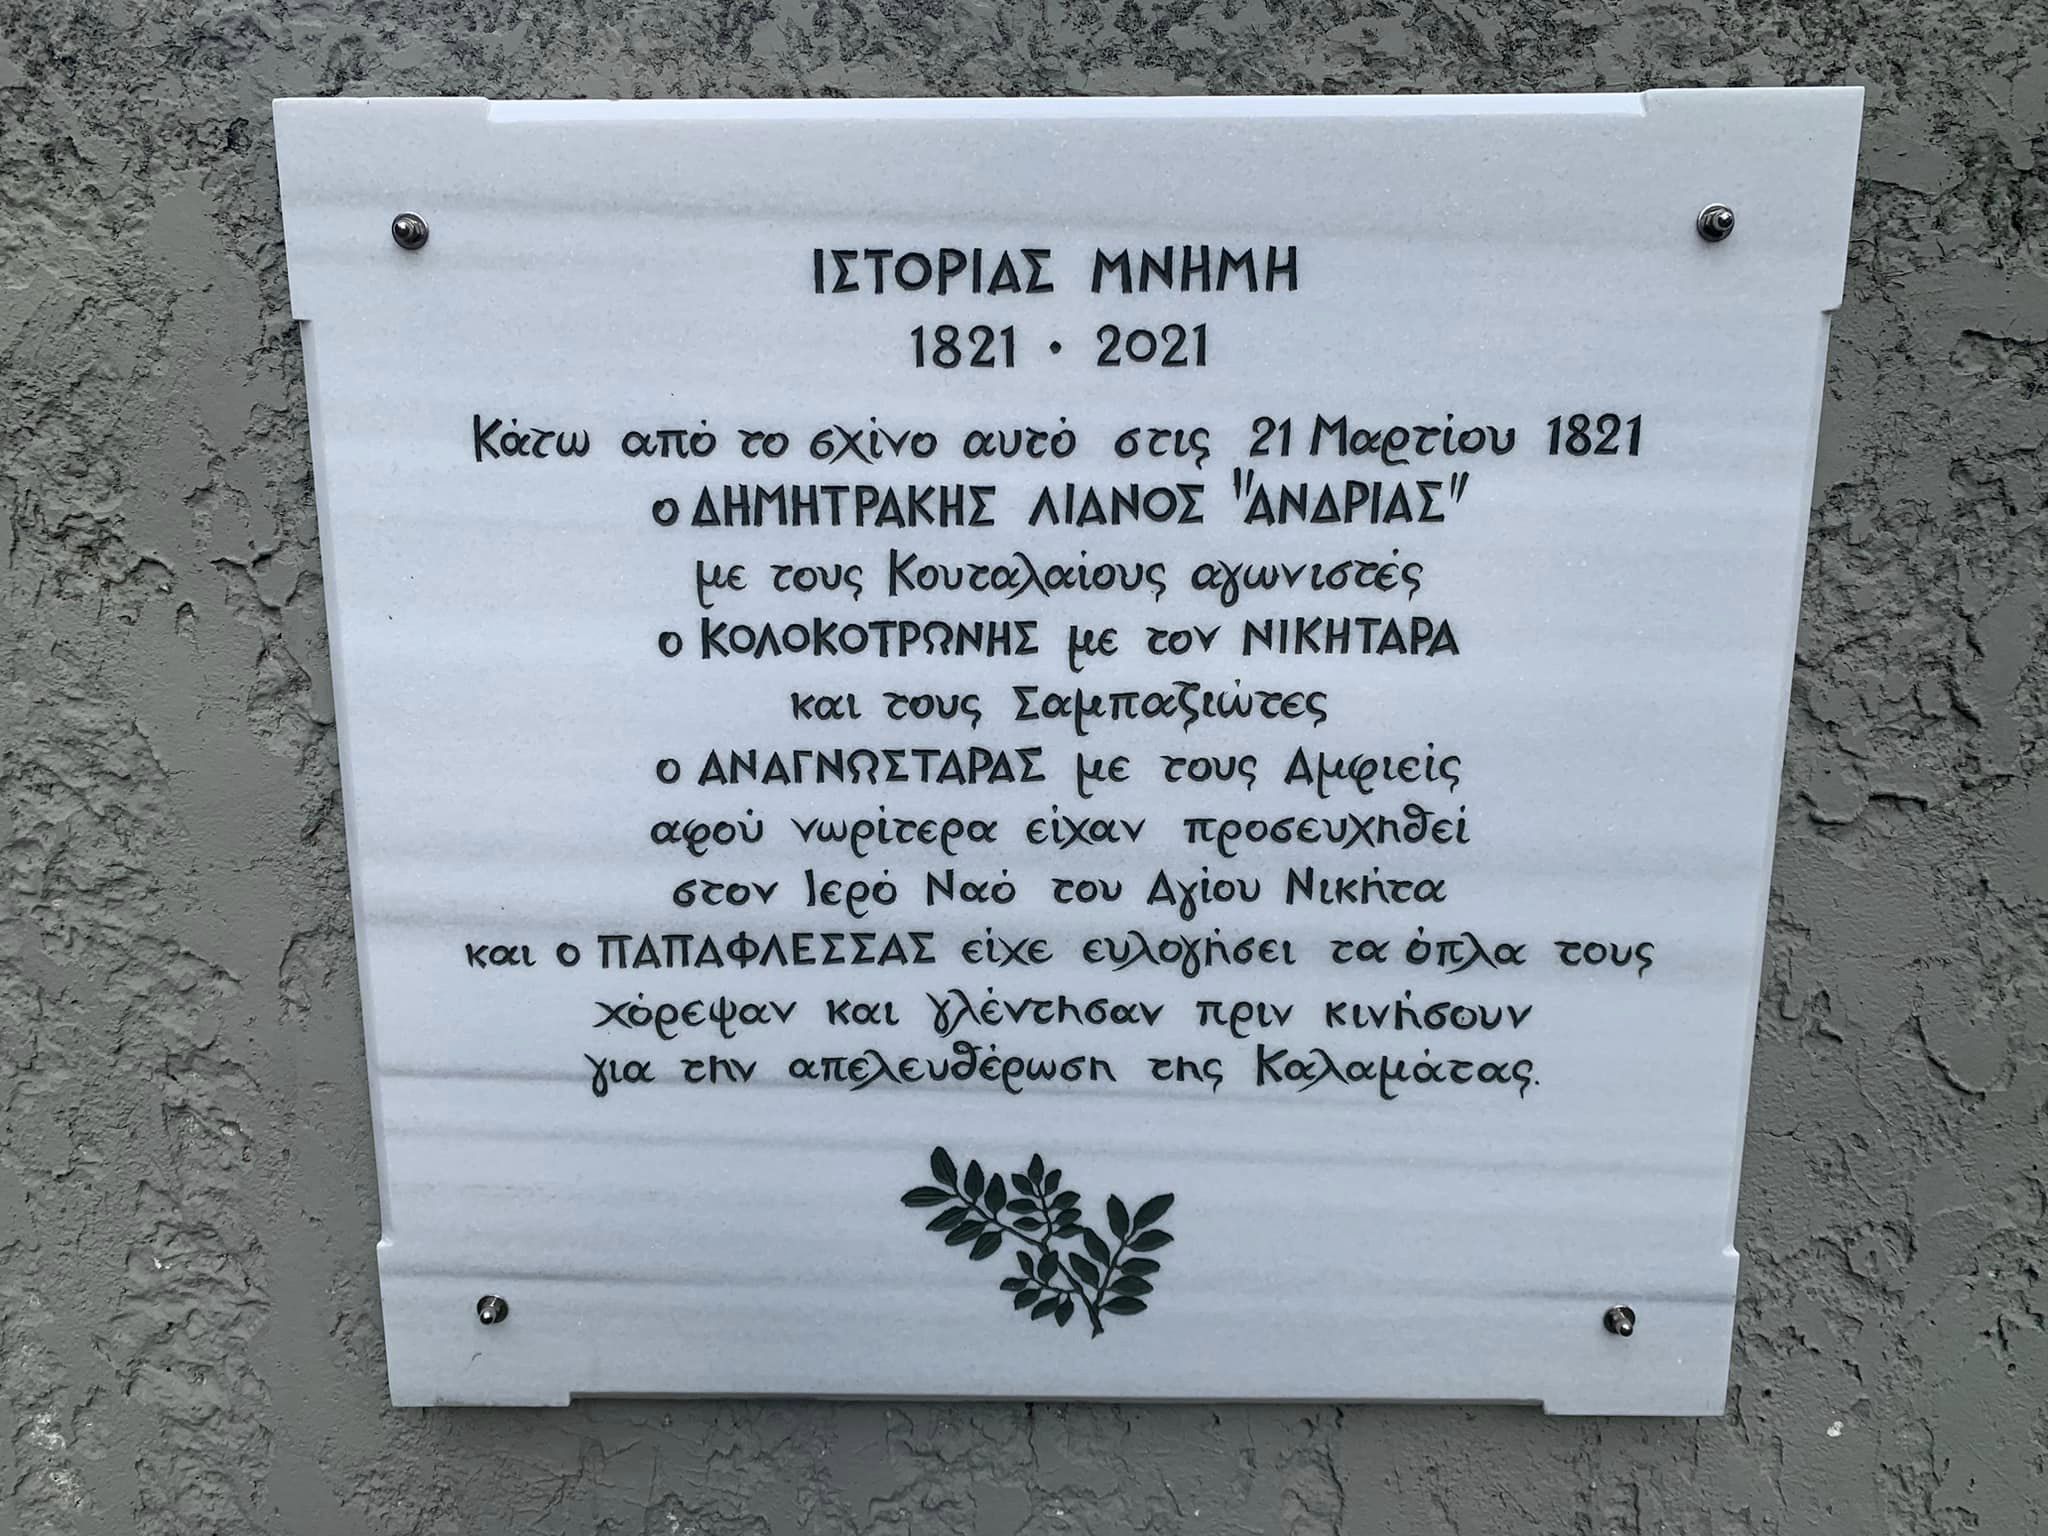 ΙΣΤΟΡΙΑΣ ΜΝΗΜΗ
1821 · 2021
Κάτω από το σχίνο αυτό στις 21 Μαρτίου 1821
ο ΔΗΜΗΤΡΑΚΗΣ ΛΙΑΝΟΣ "ΑΝΔΡΙΑΣ"
με τους Κουταλαίους αγωνιστές
ο ΚΟΛΟΚΟΤΡΩΝΗΣ με τον ΝΙΚΗΤΑΡΑ
και τους Σαμπαζιώτες
ο ΑΝΑΓΝΩΣΤΑΡΑΣ με τους Αμφιείς
αφού νωρίτερα είχαν προσευχηθεί
στον Ιερό Ναό του Αγίου Νικήτα
και ο ΠΑΠΑΦΛΕΣΣΑΣ είχε ευλογήσει τα όπλα τους
χόρεψαν και γλέντησαν πριν κινήσουν
για την απελευθέρωση της Καλαμάτας.